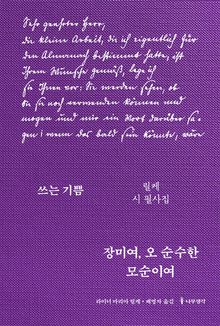 Sehr geehrter Herr,
die kleine Arbeit, die ich eigentlich für
den Almanach bestimmt hatte, ist
Ihrem Wunsche gemäß, lege ich
so Ihnen vor: Sie werden sehen, ob
Sie sie noch verwenden können und
mögen und mir ein Wort darüber sa-
gen; wenn das bald sein könnte, wäre
쓰는 기쁨
릴케
시 필사집
장미여, 오 순수한
모순이여
라이너 마리아 릴케 · 배명자 옮김
나무생각